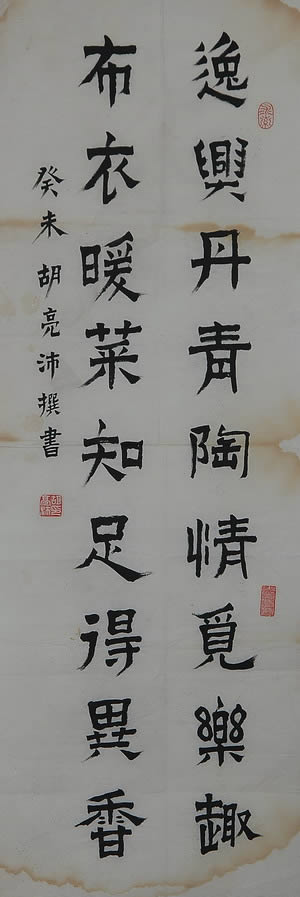 逸興丹青陶情覓樂趣
布衣暖菜知足得異香
癸未胡亮沛撰書